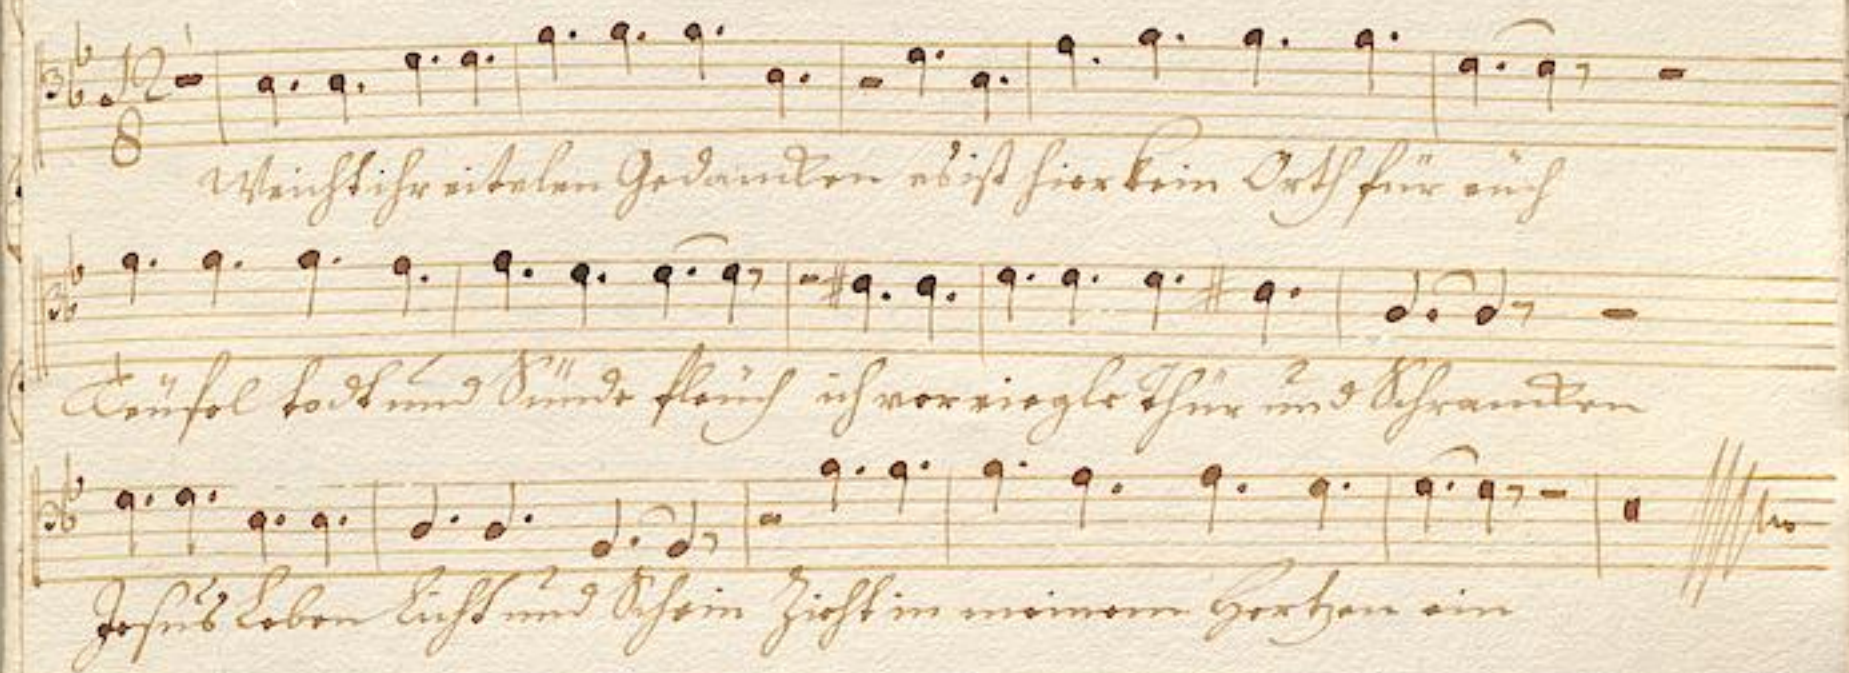 12
8
Weicht ihr eitelen Gedancken es ist hier kein Orth für euch
Teüfel todt und Sünde fleüch ich verriegle Thür und Schrancken
Jesus Leben Licht und Schein Zieht in meinem Hertzen ein